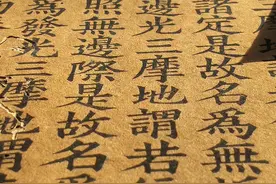 諸定是故名為無
邊光三摩地謂若
照無邊際是故名
發光三摩地謂